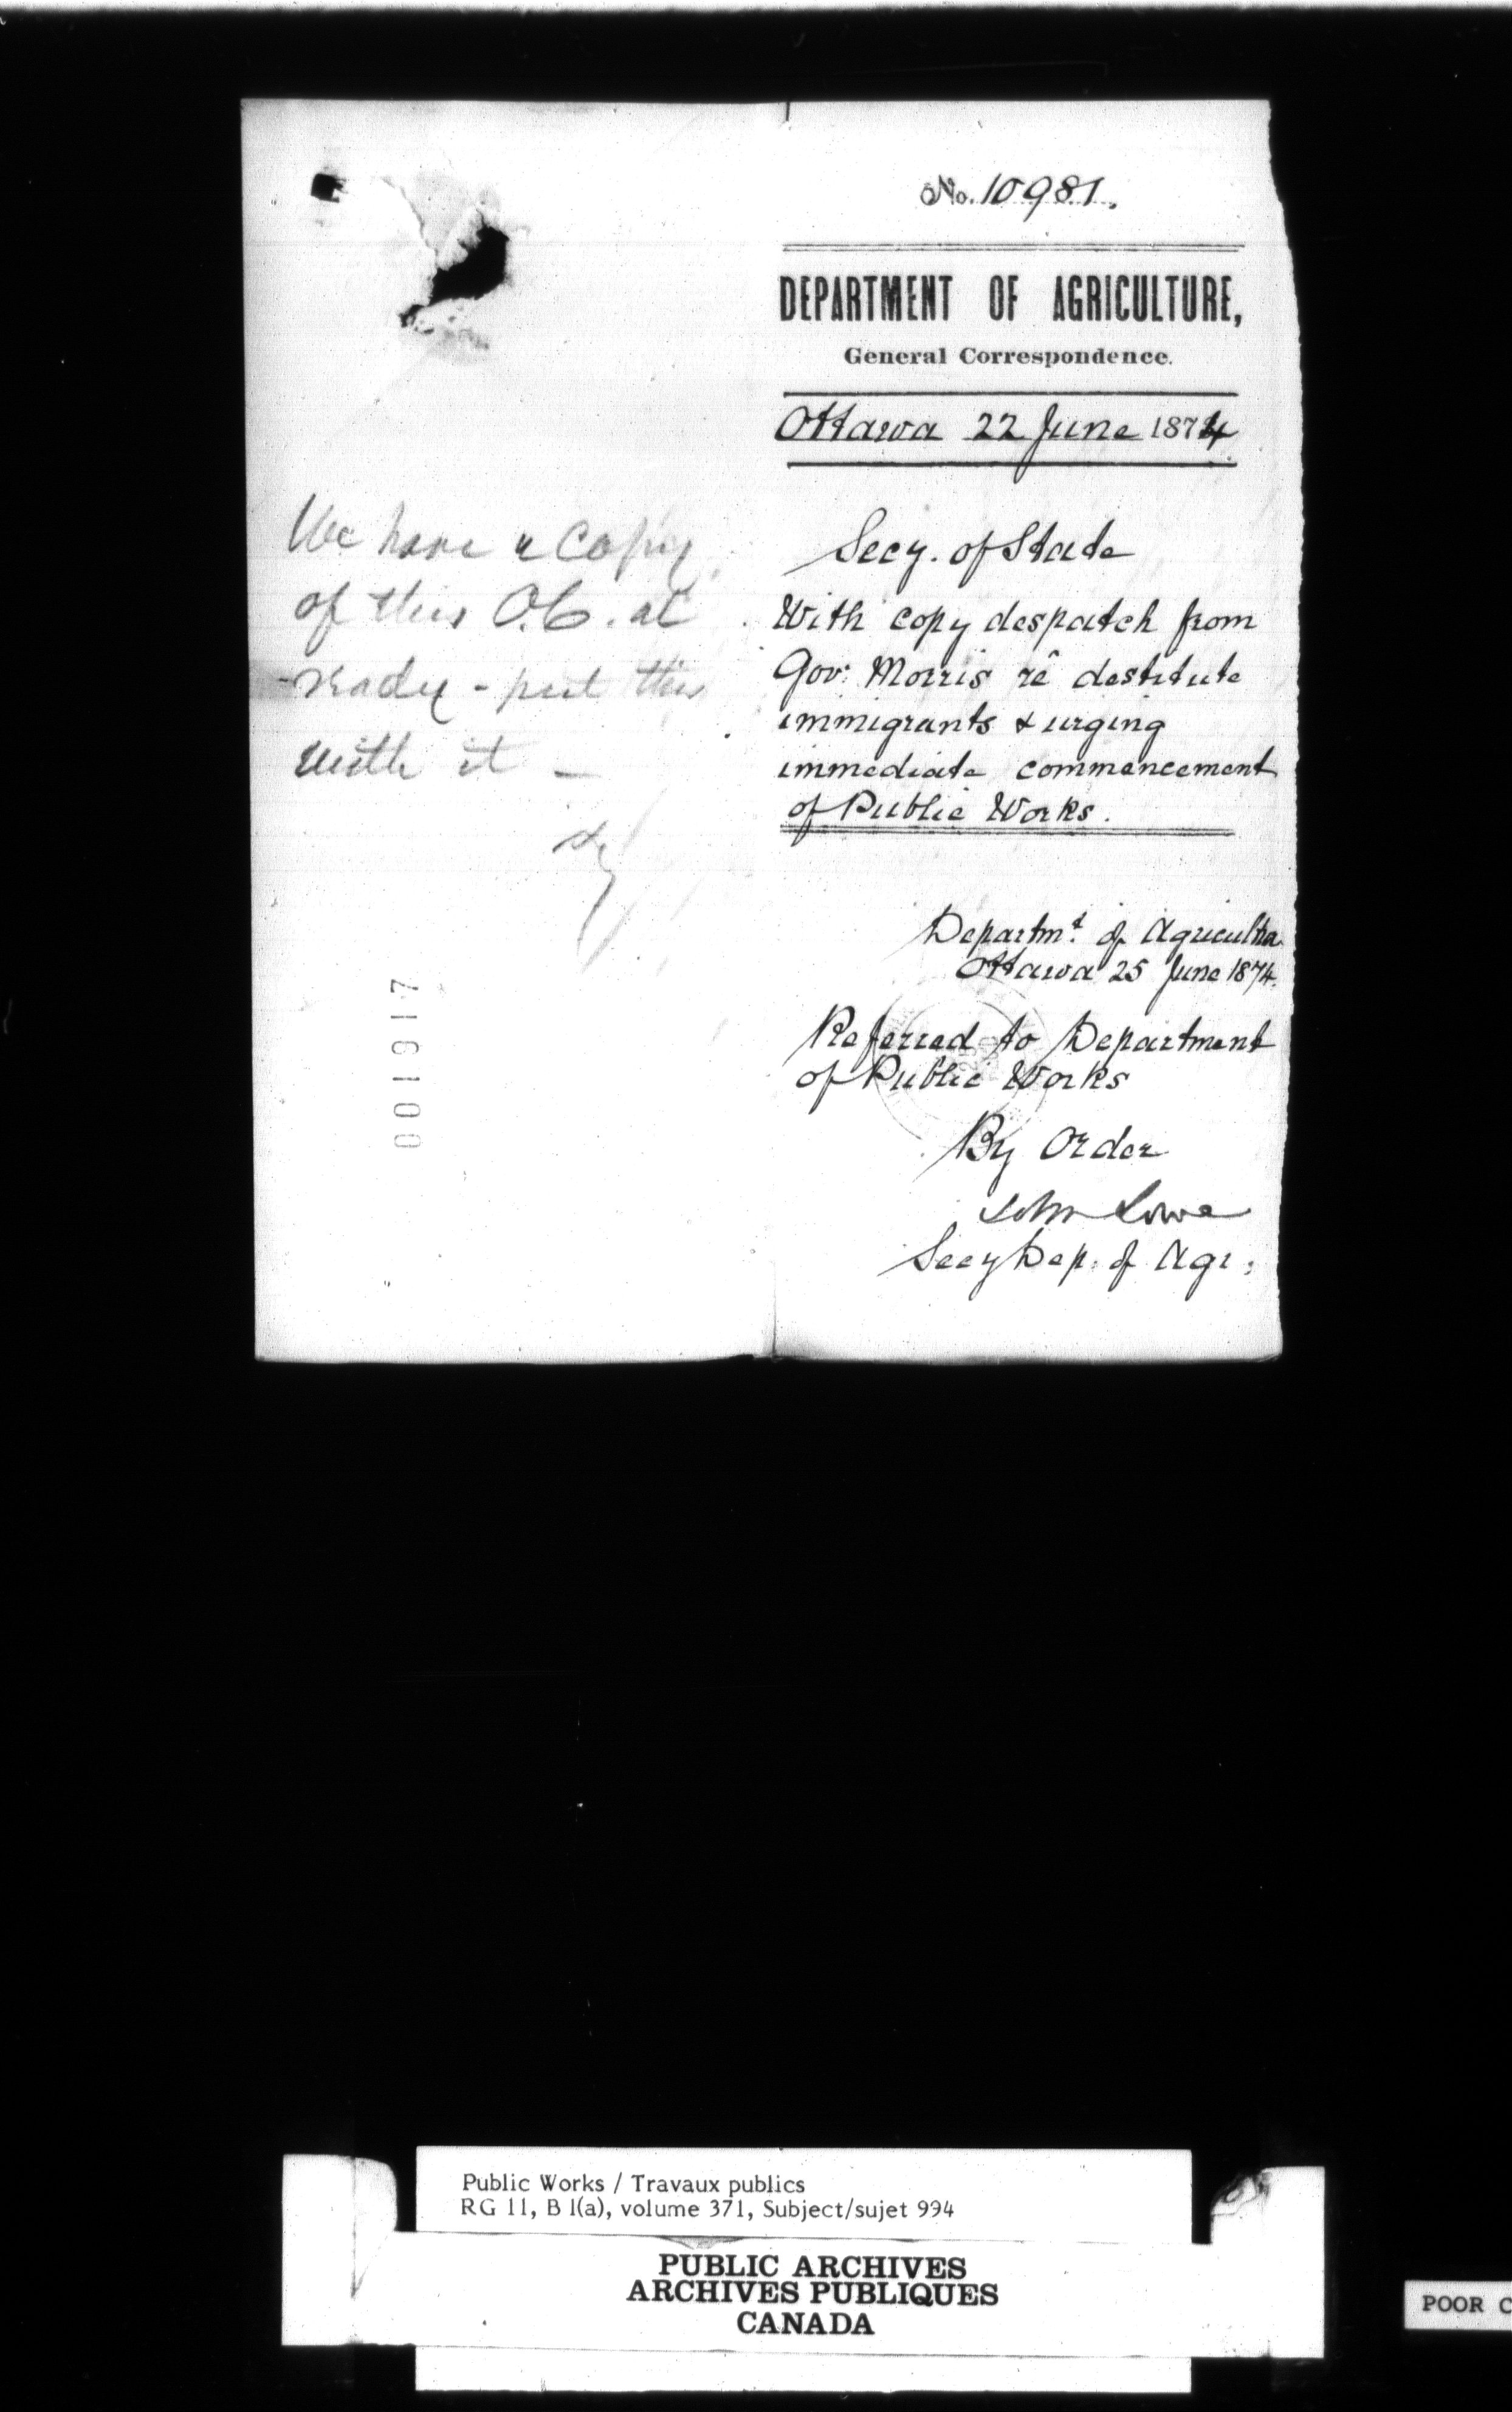 No. 10981.
DEPARTMENT OF AGRICULTURE,
General Correspondence.
Ottawa 22 June 1874
Secy. of State
With copy despatch from
Gov: Morris rê destitute
immigrants & urging
immediate commencement
of Public Works.
Departmt. of Agricultre
Ottawa 25 June 1874.
Referred to Department
of Public Works
By Order
John Lowe
Secy Dep. of Agr:
We have a copy
of this O.C. al
ready - put this
with it -
001917
Public Works / Travaux publics
RG 11, B 1(a), volume 371, Subject/sujet 994
PUBLIC ARCHIVES
ARCHIVES PUBLIQUES
CANADA
POOR C